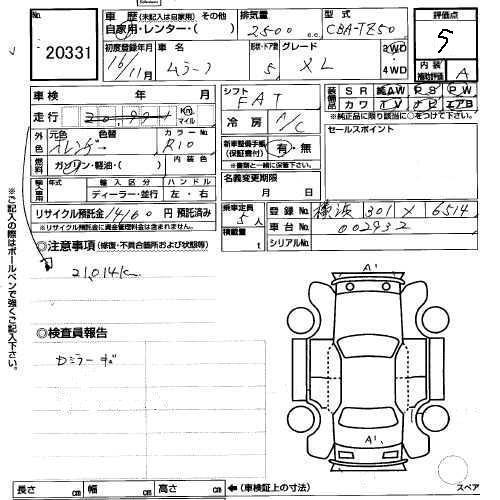 No.
20331
車歴 (未記入は自家用) その他
自家用・レンター・( )
排気量
2500 c.c
型式
CBA-TZ50
評価点
5
初度登録年月
16/11月
車名
ムラーノ
形状・ドア数
5
グレード
XL
2WD
4WD
内装
補助評価
A
車検 年 月
シフト
FAT
装備品
SR 純AW PS PW
カワ TV ナビ エアB
※純正品に限り該当に○をつけて下さい。
走行
Km
マイル
冷房
A/C
セールスポイント
外色
元色 色替
オレンジ
カラーNo.
R10
新車整備手帳
(保証書付)
有・無
※書類と一緒に保管下さい。
燃料
ガソリン・軽油・( )
内装色
輸入車
年式
輸入区分
ディーラー・並行
ハンドル
左・右
名義変更期限
月 日
リサイクル預託金 14160 円 預託済み
※リサイクル預託金に資金管理料金は含まれません。
乗車定員
5人
積載量
t
登録No.
横浜 301 メ 6514
車台No.
002932
シリアルNo.
◎注意事項 (修復・不具合箇所および状態等)
21,014km
◎検査員報告
※ご記入の際はボールペンで強くご記入下さい。
A'
A'
長さ cm 幅 cm 高さ cm ←(車検証上の寸法)
スペア